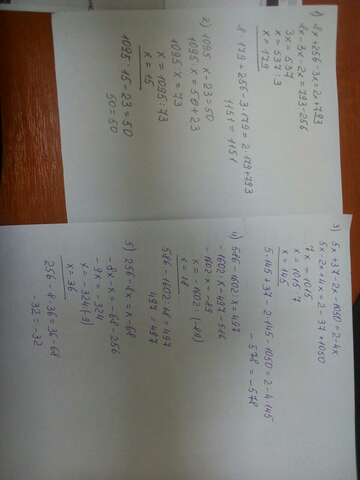 1) 8x+256-3x=2x+793
8x-3x-2x=793-256
3x=537
x=537:3
x=179
8·179+256-3·179=2·179+793
1151=1151
2) 1095:x-23=50
1095:x=50+23
1095:x=73
x=1095:73
x=15
1095:15-23=50
50=50
3) 5x+37-2x-1050=2-4x
5x-2x+4x=2-37+1050
7x=1015
x=1015:7
x=145
5·145+37-2·145-1050=2-4·145
-578=-578
4) 586-1602:x=497
-1602:x=497-586
-1602:x=-89
x=-1602:(-89)
x=18
586-1602:18=497
497=497
5) 256-8x=x-68
-8x-x=-68-256
-9x=-324
x=-324:(-9)
x=36
256-8·36=36-68
-32=-32